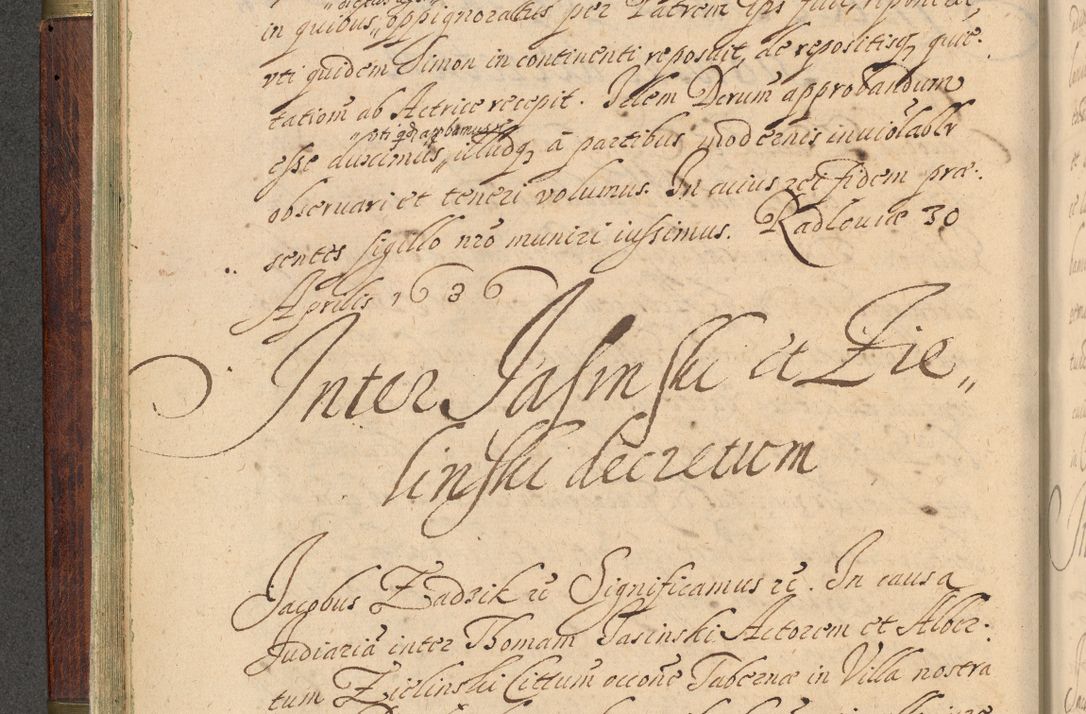 in quibus oppignoratus per Patrem ips fuit, reponeret
vti quidem Simon in continenti reposuit, de repositisq quie-
tationẽ ab Actrice recepit. Idem Decrum approbandum
vti qd approbamus
esse duximus illudq à partibus modernis inuiolablr
obseruari et teneri volumus. In cuius rei fidem præ-
sentes sigillo nro muniri iussimus. Radlouiæ 30
Aprilis 1636
Inter Jasinski et Zie,,
linski decretum
Jacobus Zadzik rc Significamus rc. In causa
Judiariâ inter Thomam Jasinski Actorem et Alber-
tum Zielinski Cittum occone Tabernæ in Villa nostra